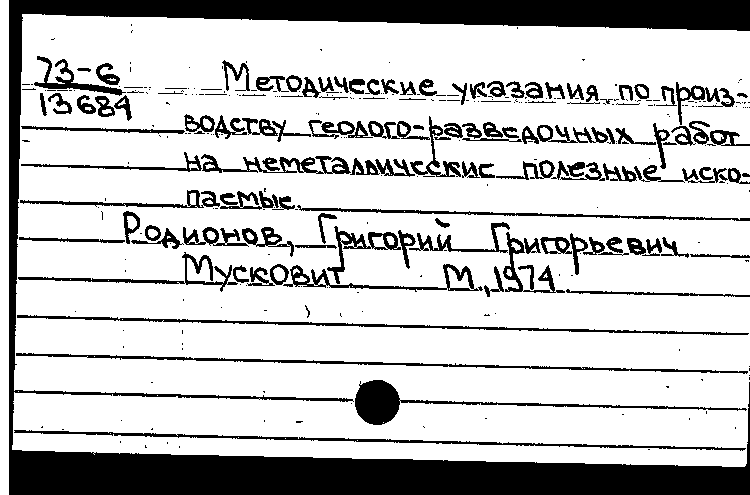 73-6 Методические указания по произ-
13684
водству геолого-разведочных работ
на неметаллические полезные иско-
паемые.
Родионов, Григорий Григорьевич
Мусковит. М., 1974.